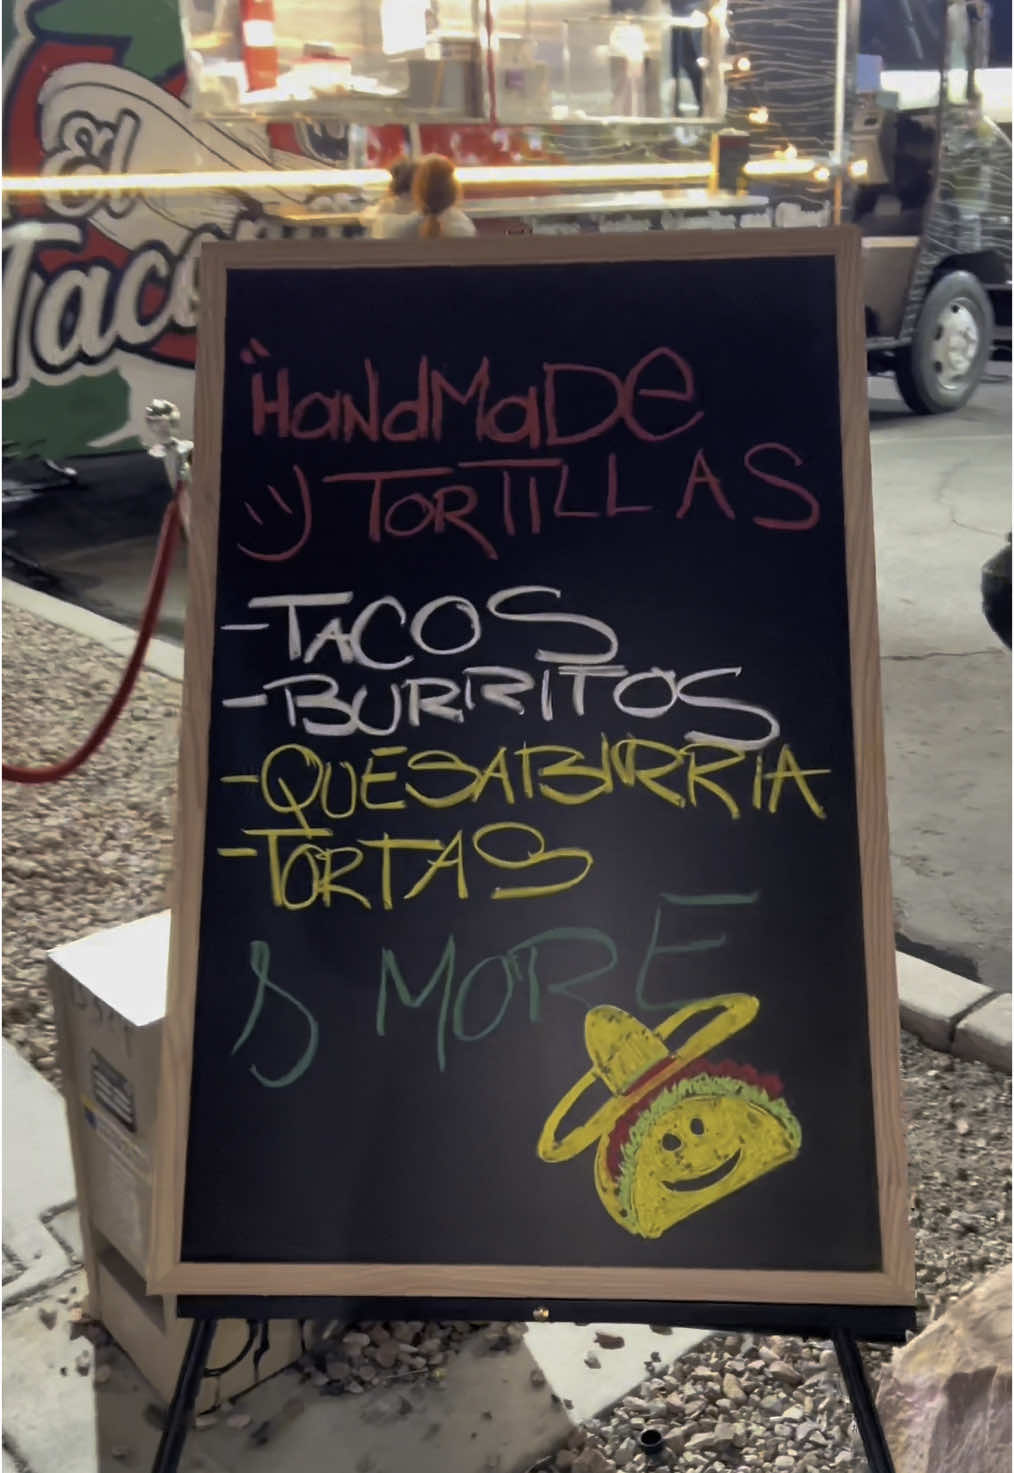 El
Taco
"HandMaDe
TORTILLAS
-TACOS
-BURRITOS
-QUESABIRRIA
-TORTAS
& MORE